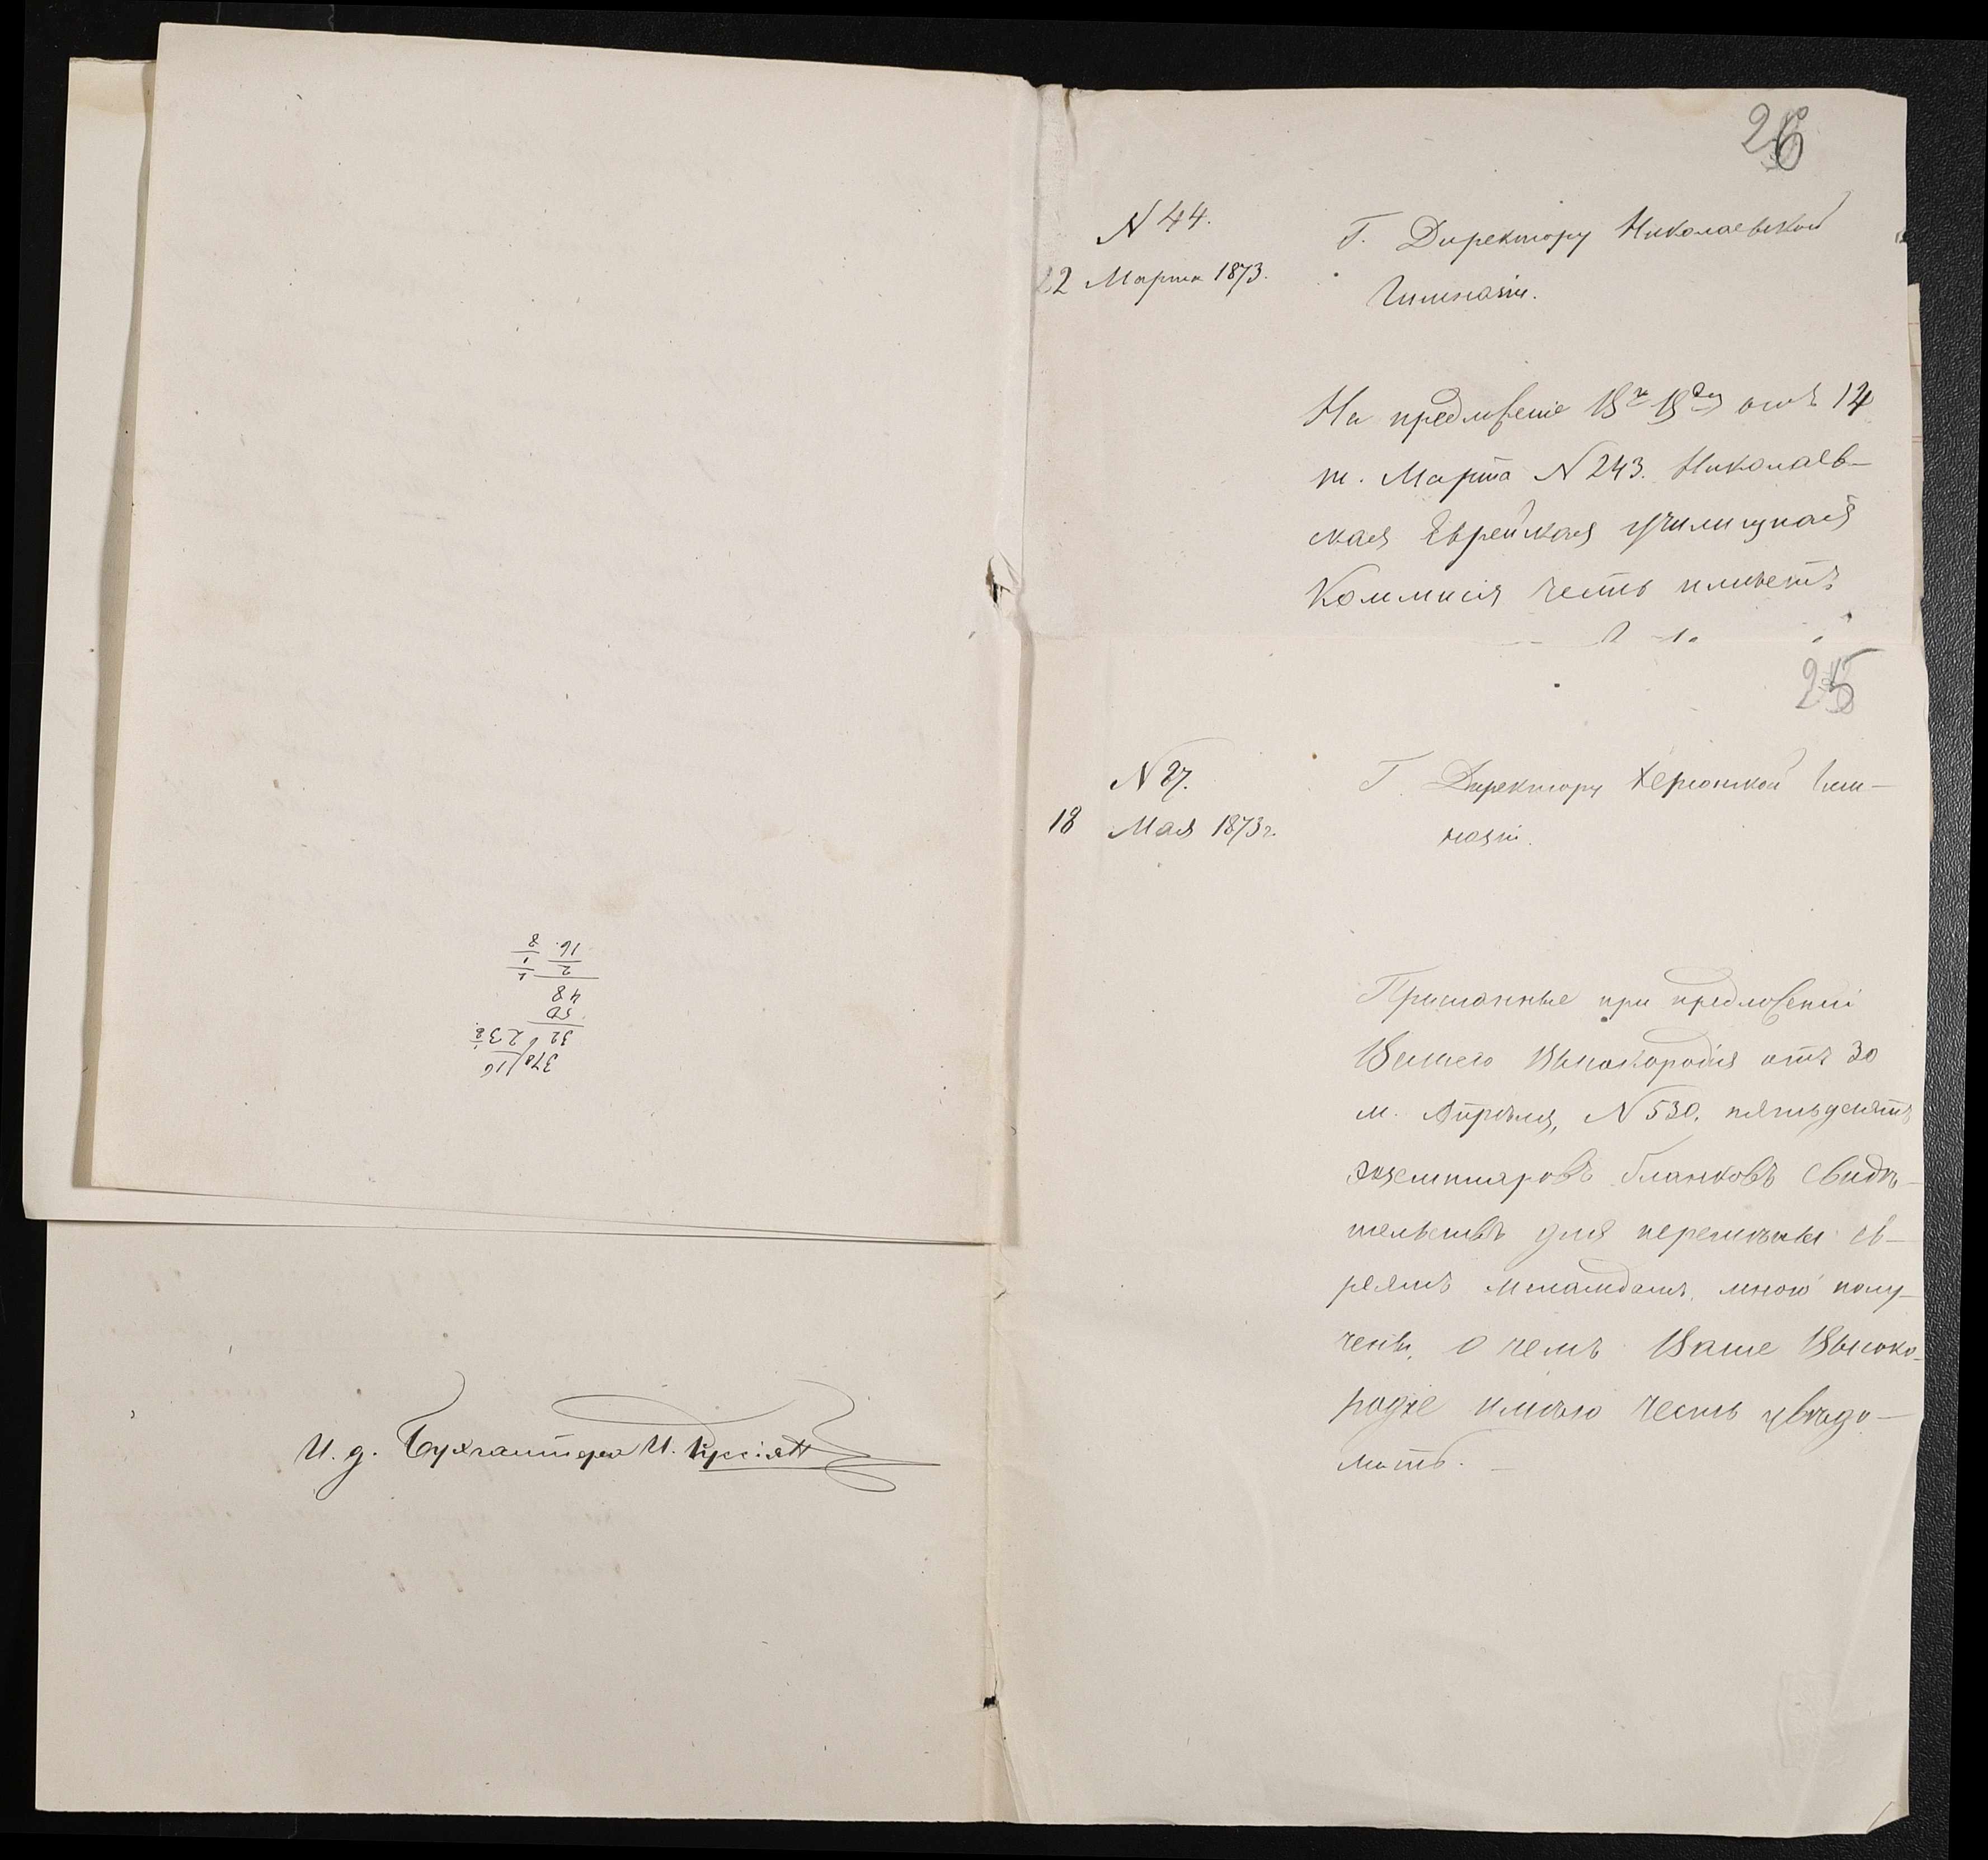 26
N 44.
22 Марта 1873.
Г. Директору Николаевской
Гимназіи.
На предложеніе Вго Вдія отъ 14
м. Марта N 243. Николаев-
ская Еврейская училищная
Коммисія честь имѣетъ
25
N 87.
18 Мая 1873 г.
Г. Директору Херсонской Гим-
назіи.
Присланные при предложеніи
Вашего Высокородія отъ 30
м. Апрѣля, N 530, пятьдесятъ
экземпляровъ бланковъ свидѣ-
тельствъ для перемѣны ев-
реямъ меламдамъ, мною полу-
чены, о чемъ Ваше Высоко-
родіе имѣю честь увѣдо-
мить.
И. д. Бухгалтера И.
378 16
32 23
50
48
2
16
8